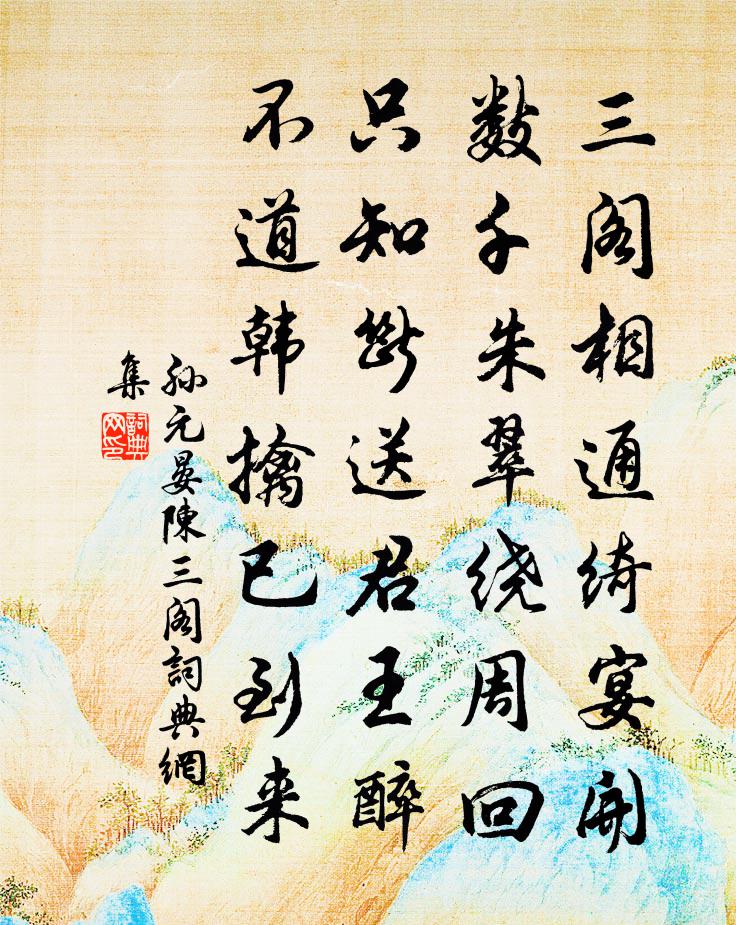 三阁相通绮宴开
数千朱翠绕周回
只知断送君王醉
不道韩擒已到来
孙元晏陳三阁詞典網
集
詞典
网印